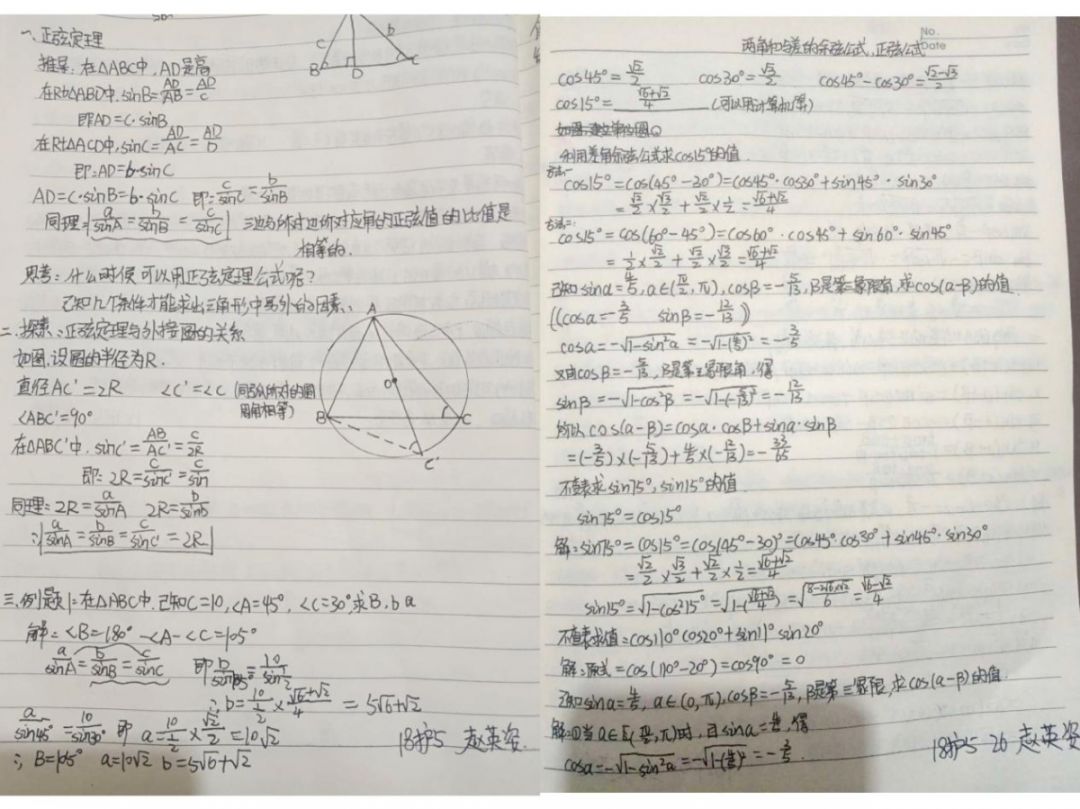 一、正弦定理
推导：在△ABC中，AD是高
在Rt△ABD中，sinB=AD/AB=AD/c
即AD=c·sinB
在Rt△ACD中，sinC=AD/AC=AD/b
即：AD=b·sinC
AD=c·sinB=b·sinC 即：c/sinC=b/sinB
同理：a/sinA=b/sinB=c/sinC 三边与对应角的正弦值的比值是
相等的.
思考：什么时候可以用正弦定理公式呢？
已知几个条件才能求出三角形中另外的因素.
c b
B D C
二、探索：正弦定理与外接圆的关系
如图，设圆的半径为R.
直径AC'=2R <C'=<C (同弧所对的圆
周角相等)
<ABC'=90°
在△ABC'中，sinC'=AB/AC'=c/2R
即：2R=c/sinC'=c/sin
同理：2R=a/sinA 2R=b/sinb
∴a/sinA=b/sinB=c/sinC'=2R
A
O
B C
C'
三、例题1：在△ABC中，已知C=10，<A=45°，<C=30°求B，b a
解：<B=180°-<A-<C=105°
a/sinA=b/sinB=c/sinC
∴b=10/½×(√6+√2)/4=5√6+√2
a/sin45°=10/sin30° 即 a=10/½×√2/2=10√2
∴B=105° a=10√2 b=5√6+√2
18护5 赵英姿
No.
Date
两角和与差的余弦公式，正弦公式
cos45°=√2/2 cos30°=√3/2 cos45°-cos30°=(√2-√3)/2
cos15°=(√6+√2)/4 (可以用计算机算)
利用差角余弦公式求cos15°的值.
方法一：
cos15°=cos(45°-30°)=cos45°·cos30°+sin45°·sin30°
=√2/2×√3/2+√2/2×1/2=(√6+√2)/4
方法二：
cos15°=cos(60°-45°)=cos60°·cos45°+sin60°·sin45°
=1/2×√2/2+√2/2×√3/2=(√6+√2)/4
已知sinα=4/5，α∈(π/2，π)，cosβ=-5/13，β是第三象限角，求cos(α-β)的值.
((cosα=-3/5 sinβ=-12/13))
cosα=-√(1-sin²α)=-√(1-(4/5)²)=-3/5
又由cosβ=-5/13，β是第三象限角，得
sinβ=-√(1-cos²β)=-√(1-(-5/13)²)=-12/13
所以cos(α-β)=cosα·cosβ+sinα·sinβ
=(-3/5)×(-5/13)+4/5×(-12/13)=-33/65
不查表求sin75°，sin15°的值.
sin75°=cos15°
解：sin75°=cos15°=cos(45°-30)°=cos45°·cos30°+sin45°·sin30°
=√2/2×√3/2+√2/2×1/2=(√6+√2)/4
不查表求值：cos110°cos20°+sin11°sin20°
解：原式=cos(110°-20°)=cos90°=0
已知sinα=4/5，α∈(0，π)，cosβ=-5/13，β是第三象限，求cos(α-β)的值.
解：①当α∈[π/2，π)时，且sinα=4/5，得
cosα=-√(1-sin²α)=-√(1-(4/5)²)=-3/5.
18护5-26 赵英姿